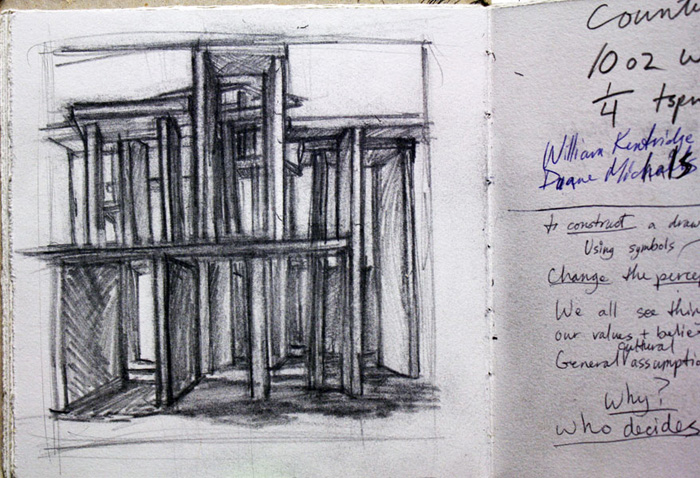 Count
10 oz w
1/4 tspn
William Kentridge
Duane Michals
to construct a draw
Using symbols
Change the percep
We all see thin
our values + belie
cultural
General assumptio
Why?
who decides